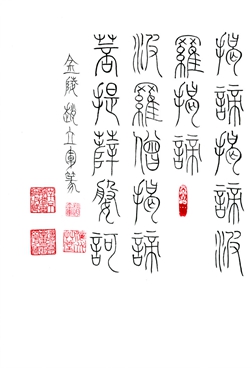 揭諦揭諦波
羅揭諦
波羅僧揭諦
菩提薛婆訶
金陵趙立軍篆